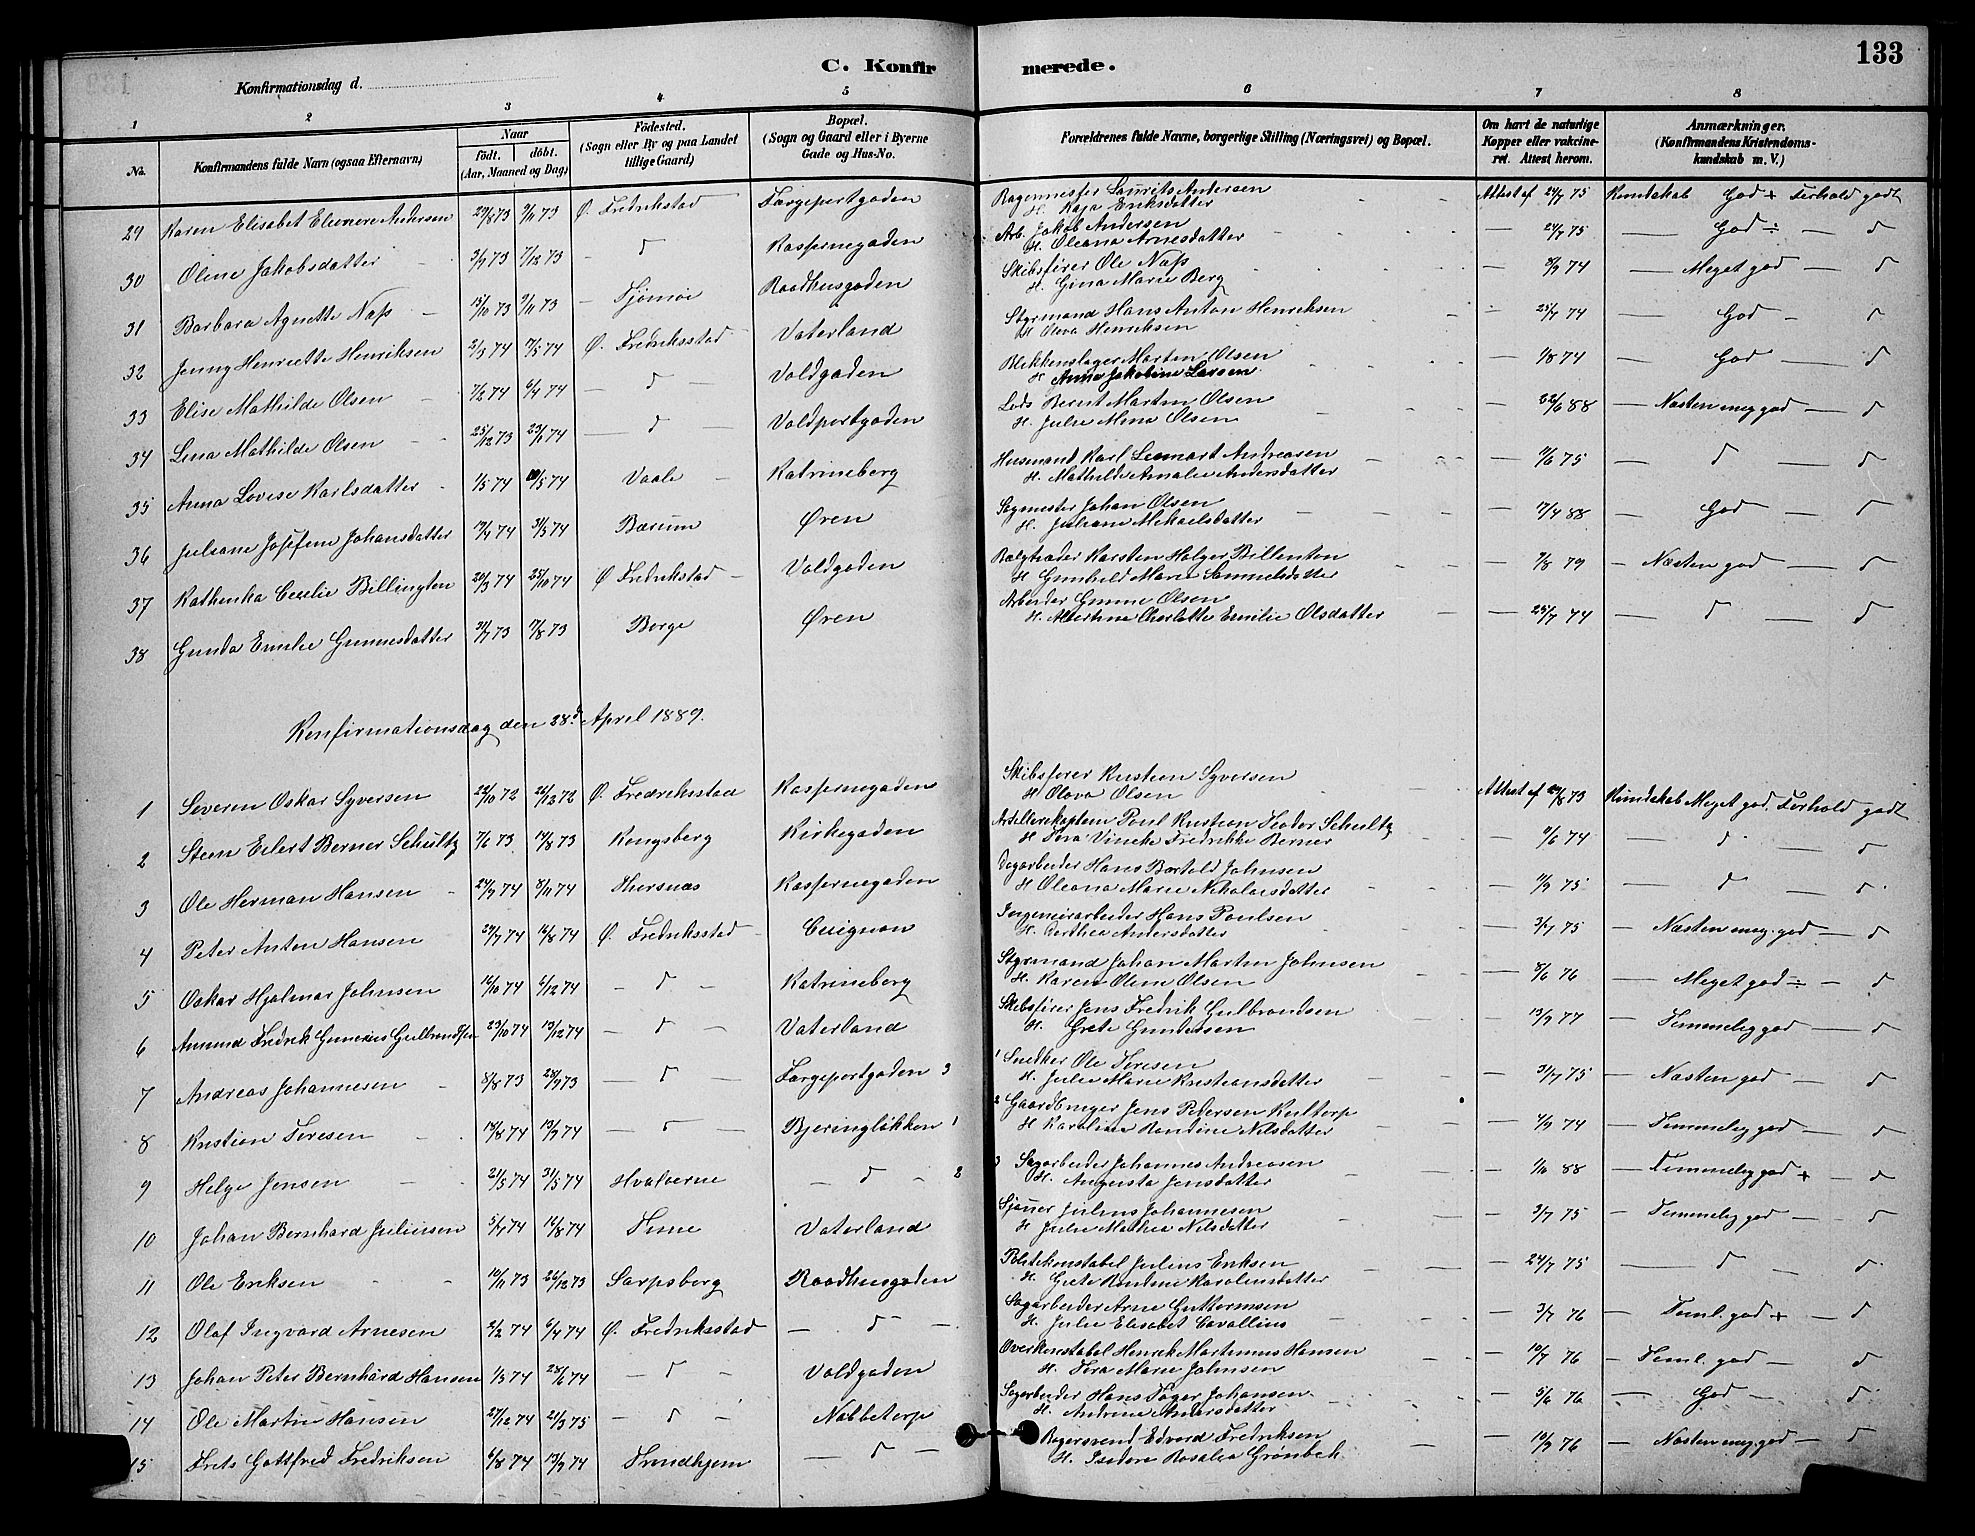 133
C. Konfirmerede.
Konfirmationsdag d.
1 2 3 4 5 6 7 8
No. Konfirmandens fulde Navn (ogsaa Efternavn) Naar födt. döbt. (Aar, Maaned og Dag) Födested. (Sogn eller By og paa Landet tillige Gaard) Bopæl. (Sogn og Gaard eller i Byerne Gade og Hus-No. Forældrenes fulde Navne, borgerlige Stilling (Næringsvei) og Bopæl. Om havt de naturlige Kopper eller vaccineret. Attest herom. Anmærkninger. (Konfirmandens Kristendomskundskab m. V.)
29 Karen Elisabet Elenore Andersen 29/8 73 9/11 73 Ø. Fredrikstad Færgeportgaden Bagermester Laurits Andersen H. Kaja Eriksdatter Attest af 24/7 75 Kundskab God + Forhold godt
30 Oline Jakobsdatter 3/9 73 7/12 73 — d Kasernegaden Arb. Jakob Andersen H. Oleana Arnesdatter — 24/7 75 — God ÷ — d
31 Barbara Agnette Næss 15/10 73 9/11 73 — Tjømøe Raadhusgaden Skibsfører Ole Næss H. Gina Marie Berg — 8/9 74 — Meget god — d
32 Jenny Henriette Henriksen 2/3 74 7/5 74 Ø. Fredriksstad Vaterland Styrmand Hans Anton Henriksen H. Olava Henriksen — 25/7 74 — God — d
33 Elise Mathilde Olsen 7/2 74 6/4 74 — d — Voldgaden Blikkenslager Morten Olsen H. Anna Jakobine Larsen — 1/8 74 — God — d
34 Lina Mathilde Olsen 25/12 73 23/1 74 — d — Voldportgaden Lods Bernt Martin Olsen H. Julie Mina Olsen — 22/6 88 — Næsten meg god — d
35 Anna Lovise Karlsdatter 1/5 74 10/5 74 Vaale Katrineborg Husmand Karl Lennart Andreasen H. Mathilde Amalie Andersdatter — 11/6 75 — d — d
36 Juliane Josefine Johansdatter 19/4 74 31/5 74 Bærum Øren Sagmester Johan Olsen H. Juliane Mikaelsdatter — 17/4 88 — God — d
37 Kathinka Cecilie Billington 20/3 74 25/10 74 Ø Fredrikstad — Voldgaden Bælgtræder Karsten Holger Billenton H. Gunhild Marie Samuelsdatter — 7/8 79 — Næsten god — d
38 Gunda Emilie Gunnesdatter 31/7 73 17/8 73 Borge Øren Arbeider Gunne Olsen H. Martina Charlotte Emilie Olsdatter — 25/7 74 — d — d
Konfirmationsdag den 28d April 1889.
1 Severin Oskar Syversen 22/10 72 26/12 72 Ø. Fredriksstad Kasernegaden Skibsfører Kristian Syversen H. Olava Olsen Attest af 20/8 73 Kundskab Meget god. Forhold godt
2 Steen Eilert Berner Schultz 7/6 73 14/8 73 Kongsberg Kirkegaden Artillerikaptein Poul Kristian Teodor Schultz H. Tora Vincke Fredrikke Berner — 10/6 74 — d — d
3 Ole Herman Hansen 24/9 74 8/11 74 Thorsnæs Kasernegaden Dagarbeider Hans Bertold Johnsen H. Oleana Marie Nikolaisdatter — 11/9 75 — d — d
4 Peter Anton Hansen 29/7 74 16/8 74 Ø. Fredriksstad Cicignon Ingeniørarbeider Hans Poulsen H. Dorthea Andersdatter — 3/7 75 — Næsten meg. god — d
5 Oskar Hjalmar Johnsen 16/10 74 6/12 74 — d — Katrineborg Styrmand Johan Martin Johnsen H. Karen Oline Olsen — 8/6 76 — Meget god ÷ — d
6 Amund Fredrik Gunerius Gulbrandsen 23/10 74 13/12 74 — d — Vaterland Skibsfører Jens Fredrik Gulbrandsen H. Grete Gundersen — 13/9 77 — Temmelig god — d
7 Andreas Johannesen 8/8 73 28/9 73 — d — Færgeportgaden 3 1 Snedker Ole Toresen H. Julie Marie Kristiansdatter — 31/7 75 — Næsten god — d
8 Kristian Toresen 18/8 74 13/9 74 — d — Bjeringløkken 1 2 Gaardbruger Jens Petersen Kultorp H. Karoline Randine Nilsdatter — 4/9 74 — Temmelig god — d
9 Helge Jensen 21/5 74 31/5 74 Hvaløerne — d — 2 3 Sagarbeider Johannes Andreasen H. Augusta Jensdatter — 1/10 88 — Temmelig god + — d
10 Johan Bernhard Juliusen 5/7 74 16/8 74 Tune Vaterland Sjauer Julius Johannesen H. Julie Mathea Nilsdatter — 3/7 75 — Temmelig god — d
11 Ole Eriksen 10/11 73 26/12 73 Sarpsborg Raadhusgaden Politikonstabel Julius Eriksen H. Grete Randine Karoliusdatter — 24/7 75 — d — d
12 Olaf Ingvard Arnesen 2/2 74 6/4 74 Ø. Fredriksstad — d — Sagarbeider Arne Guttormsen H. Julie Elisabet Cavallius — 3/7 76 — Teml. god + — d
13 Johan Peter Bernhard Hansen 1/3 74 28/6 74 — d — Voldgaden Overkonstabel Henrik Martinius Hansen H. Tora Marie Johnsen — 10/7 76 — Teml. god — d
14 Ole Martin Hansen 27/12 74 21/3 75 — d — Nabbetorp Sagarbeider Hans Roger Johansen H. Andrine Andersdatter — 5/6 76 — God — d
15 Frits Gottfred Fredriksen 6/8 74 13/9 74 Trondhjem — d — Bagersvend Edvard Fredriksen H. Isidora Rosalia Grønbek — 10/9 76 — Næsten meg. god — d